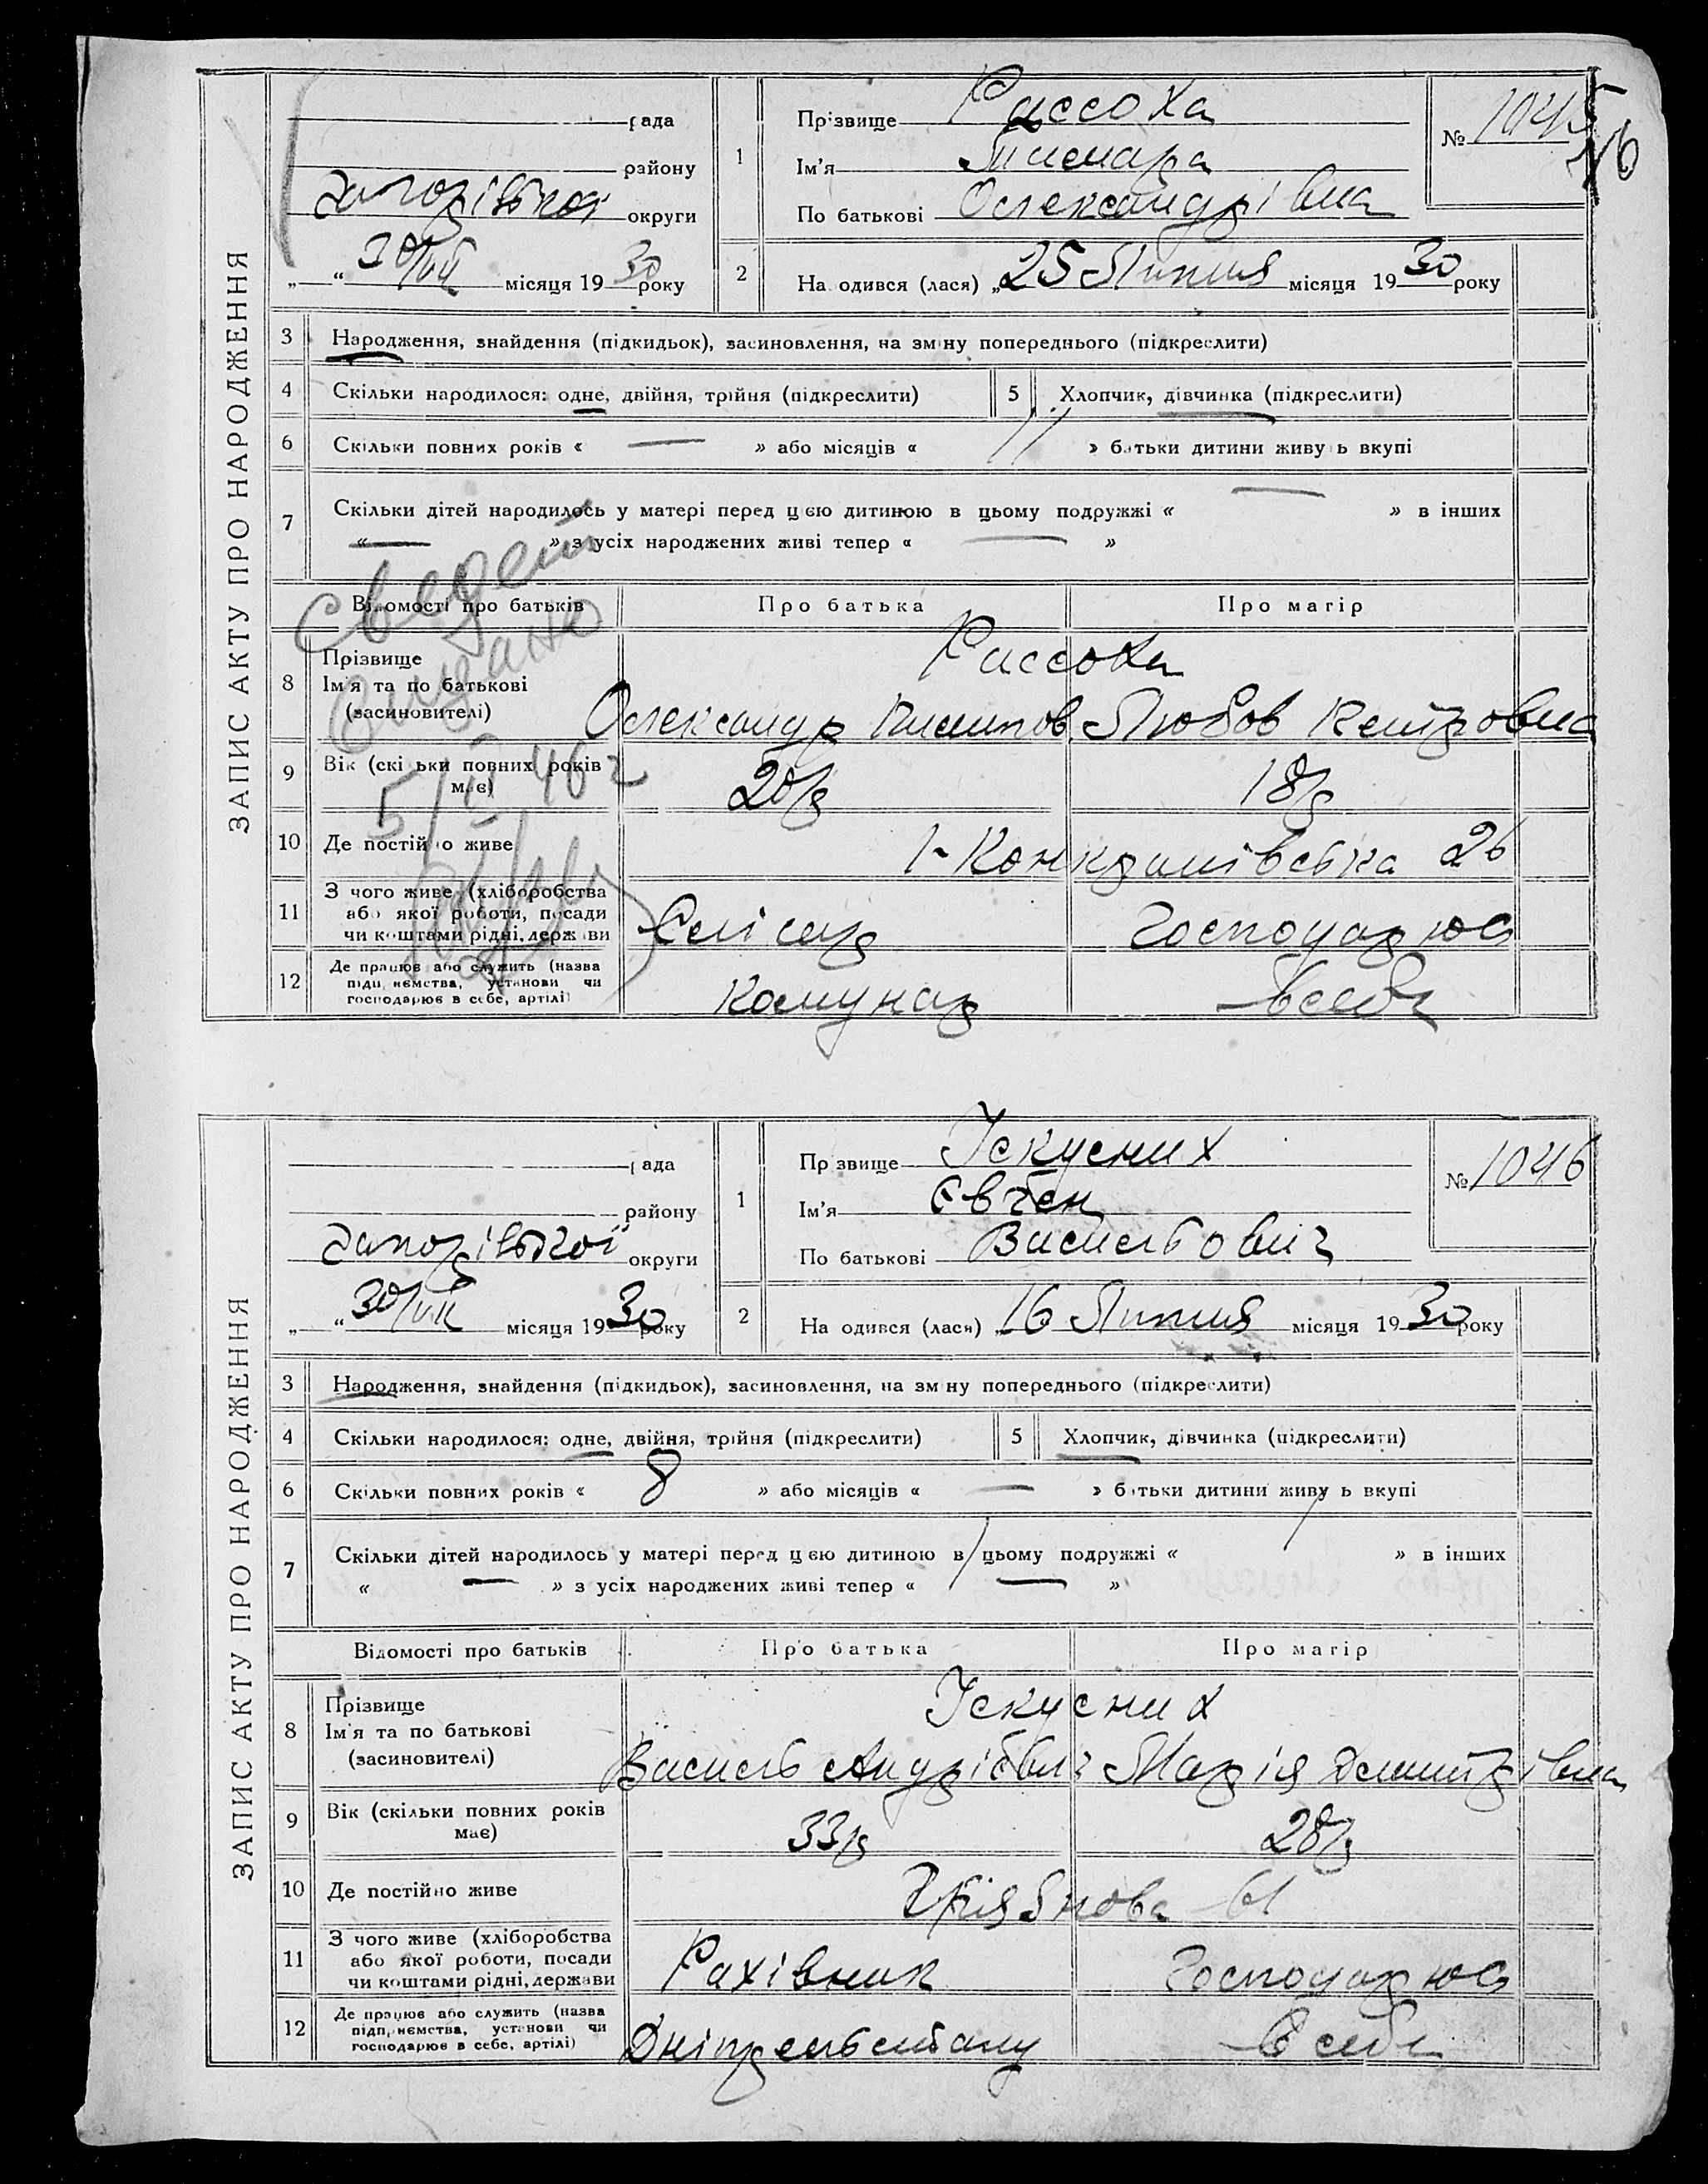 ЗАПИС АКТУ ПРО НАРОДЖЕННЯ
рада
району
Запорізької округи
„ “ 30/VII місяця 1930 року
1
Прізвище Рассоха
Ім'я Тамара
По батькові Олександрівна
№ 1045
16
2
На одився (лася) „25 Липня місяця 1930 року
3 Народження, знайдення (підкидьок), засиновлення, на зміну попереднього (підкреслити)
4 Скільки народилося: одне, двійня, трійня (підкреслити)
5 Хлопчик, дівчинка (підкреслити)
6 Скільки повних років « — » або місяців « 11 » батьки дитини живуть вкупі
7 Скільки дітей народилось у матері перед цією дитиною в цьому подружжі « — » в інших
« — » з усіх народжених живі тепер « — »
Сведет
Выдано
5/II 46 г
Відомості про батьків
Про батька
Про матір
8 Прізвище
Ім'я та по батькові
(засиновителі)
Рассоха
Олександр Пилипов. Любов Петровна
9 Вік (скільки повних років
має)
20/р
18/р
10 Де постійно живе
26
11 З чого живе (хліборобства
або якої роботи, посади
чи коштами рідні, держави
Слісар
Господарює
12 Де працює або служить (назва
підприємства, установи чи
господарює в себе, артілі)
Комунар
в себе
ЗАПИС АКТУ ПРО НАРОДЖЕННЯ
рада
району
Запорізької округи
„ “ 30/VII місяця 1930 року
1
Прізвище Іскусних
Ім'я Євген
По батькові Васильович
№ 1046
2
На одився (лася) „16 Липня місяця 1930 року
3 Народження, знайдення (підкидьок), засиновлення, на зміну попереднього (підкреслити)
4 Скільки народилося: одне, двійня, трійня (підкреслити)
5 Хлопчик, дівчинка (підкреслити)
6 Скільки повних років « 8 » або місяців « — » батьки дитини живуть вкупі
7 Скільки дітей народилось у матері перед цією дитиною в цьому подружжі « 1 » в інших
« — » з усіх народжених живі тепер « 1 — »
Відомості про батьків
Про батька
Про матір
8 Прізвище
Ім'я та по батькові
(засиновителі)
Іскусних
Василь Андрієвич Марія Дмитрівна
9 Вік (скільки повних років
має)
33/р
28/р
10 Де постійно живе
61
11 З чого живе (хліборобства
або якої роботи, посади
чи коштами рідні, держави
Рахівник
Господарює
12 Де працює або служить (назва
підприємства, установи чи
господарює в себе, артілі)
Дніпрельстану
в себе